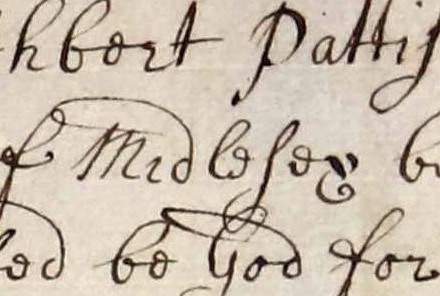 hbert Pattis
of Midlesex be
ed be God for